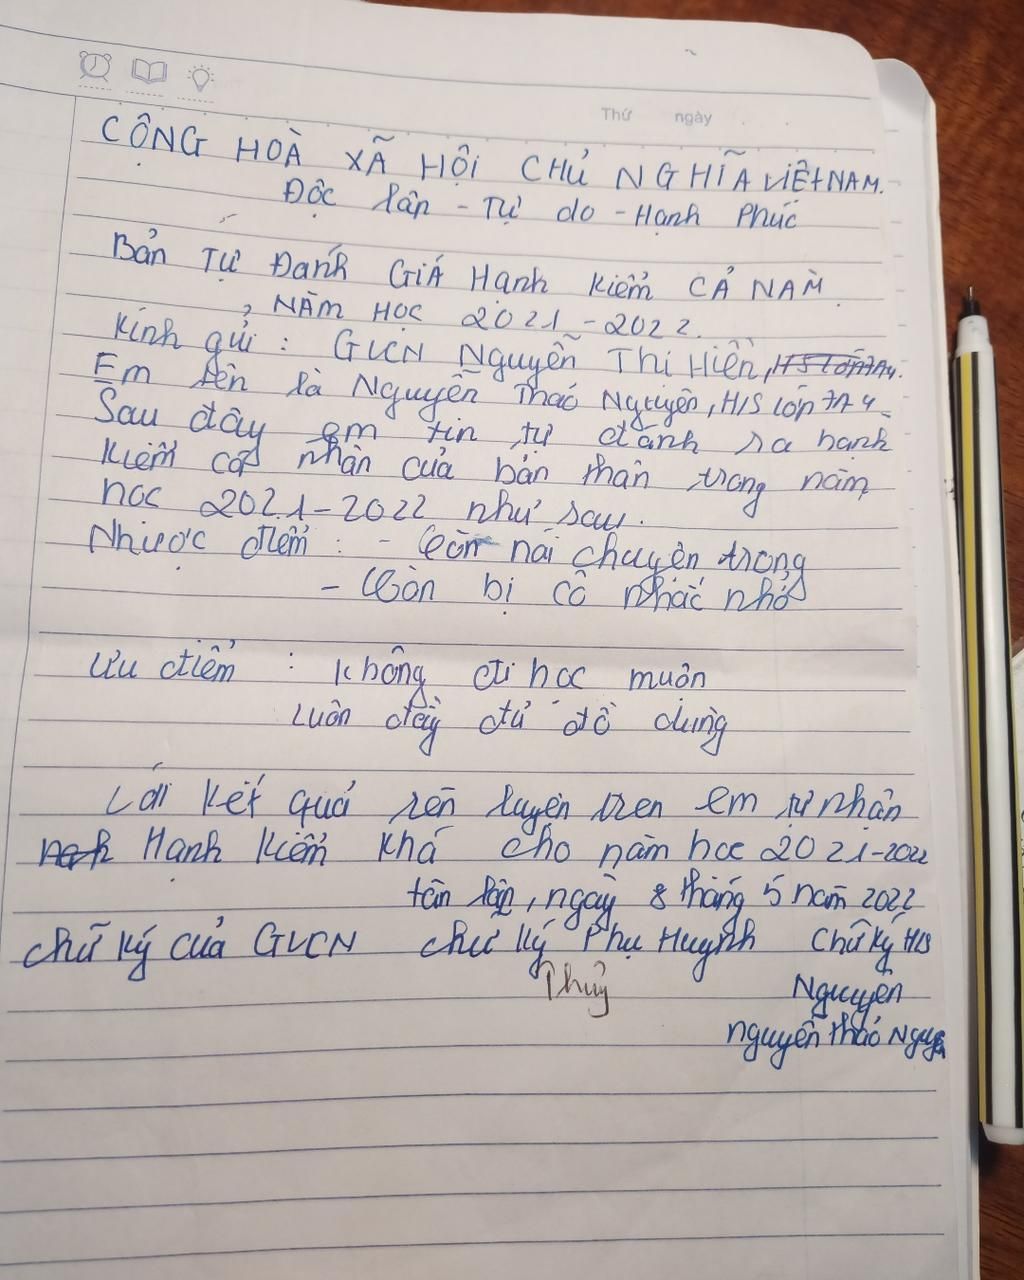 Thứ ngày
CỘNG HOÀ XÃ HỘI CHỦ NGHĨA VIỆT NAM.
Độc lân - Tự do - Hạnh Phúc
Bản Tự Đánh GIÁ Hạnh kiểm CẢ NĂM
NĂM HỌC 2021-2022.
Kính gửi : GVCN Nguyễn Thi Hiền, HS lớp 7A4.
Em tên là Nguyễn Thảo Nguyên, H/S lớp 7A4.
Sau đây em tin tự đánh ra hanh
kiểm cá nhân của bản thân trong năm
học 2021-2022 như sau.
Nhược điểm : - Còn nói chuyện trong
- Còn bị cô nhắc nhở
Ưu điểm : Không đi học muộn
Luôn đầy đủ đồ dùng
Lới kết quả rèn luyện tren em tự nhận
Hạnh kiểm khá cho năm học 2021-2022
tân lập, ngày 8 tháng 5 năm 2022
chữ ký của GVCN chữ ký Phụ Huynh Chữ ký H/S
Thuỷ
Nguyên
nguyễn thảo Nguyên